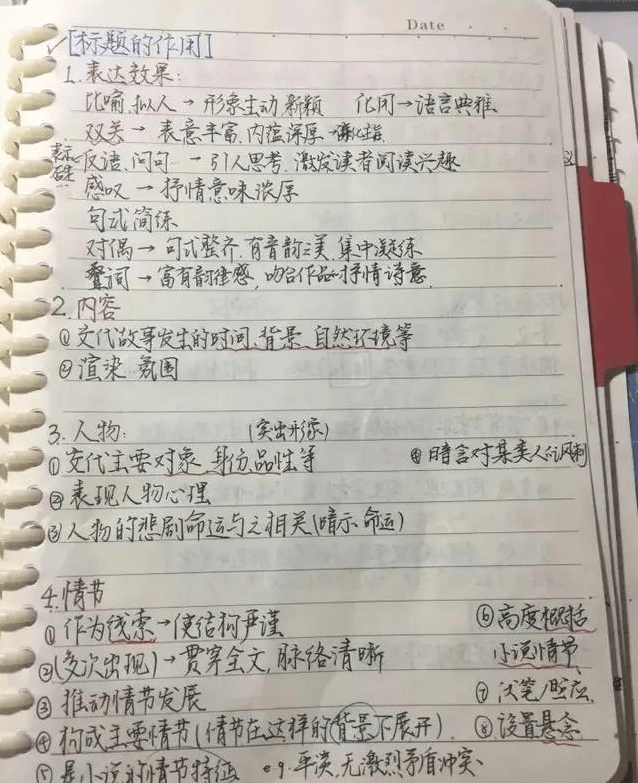 Date
[标题的作用]
1.表达效果:
比喻,拟人→形象生动新颖 化用→语言典雅
双关→表意丰富,内蕴深厚
反语,问句→引人思考,激发读者阅读兴趣
感叹→抒情意味浓厚
句式简练
对偶→句式整齐,有音韵之美,集中凝练
叠词→富有韵律感,吻合作品的抒情诗意.
2.内容
①交代故事发生的时间,背景,自然环境等
②渲染氛围
3.人物: (突出形象)
①交代主要对象,身份品性等 ④暗含对某类人的讽刺
②表现人物心理
③人物的悲剧命运与之相关(暗示命运)
4.情节
①作为线索→使结构严谨 ⑥高度概括
②(多次出现)→贯穿全文,脉络清晰 小说情节
③推动情节发展 ⑦伏笔/照应
④构成主要情节(情节在这样的背景下展开) ⑧设置悬念
⑤是小说的情节特征 eg.平淡,无激烈矛盾冲突.